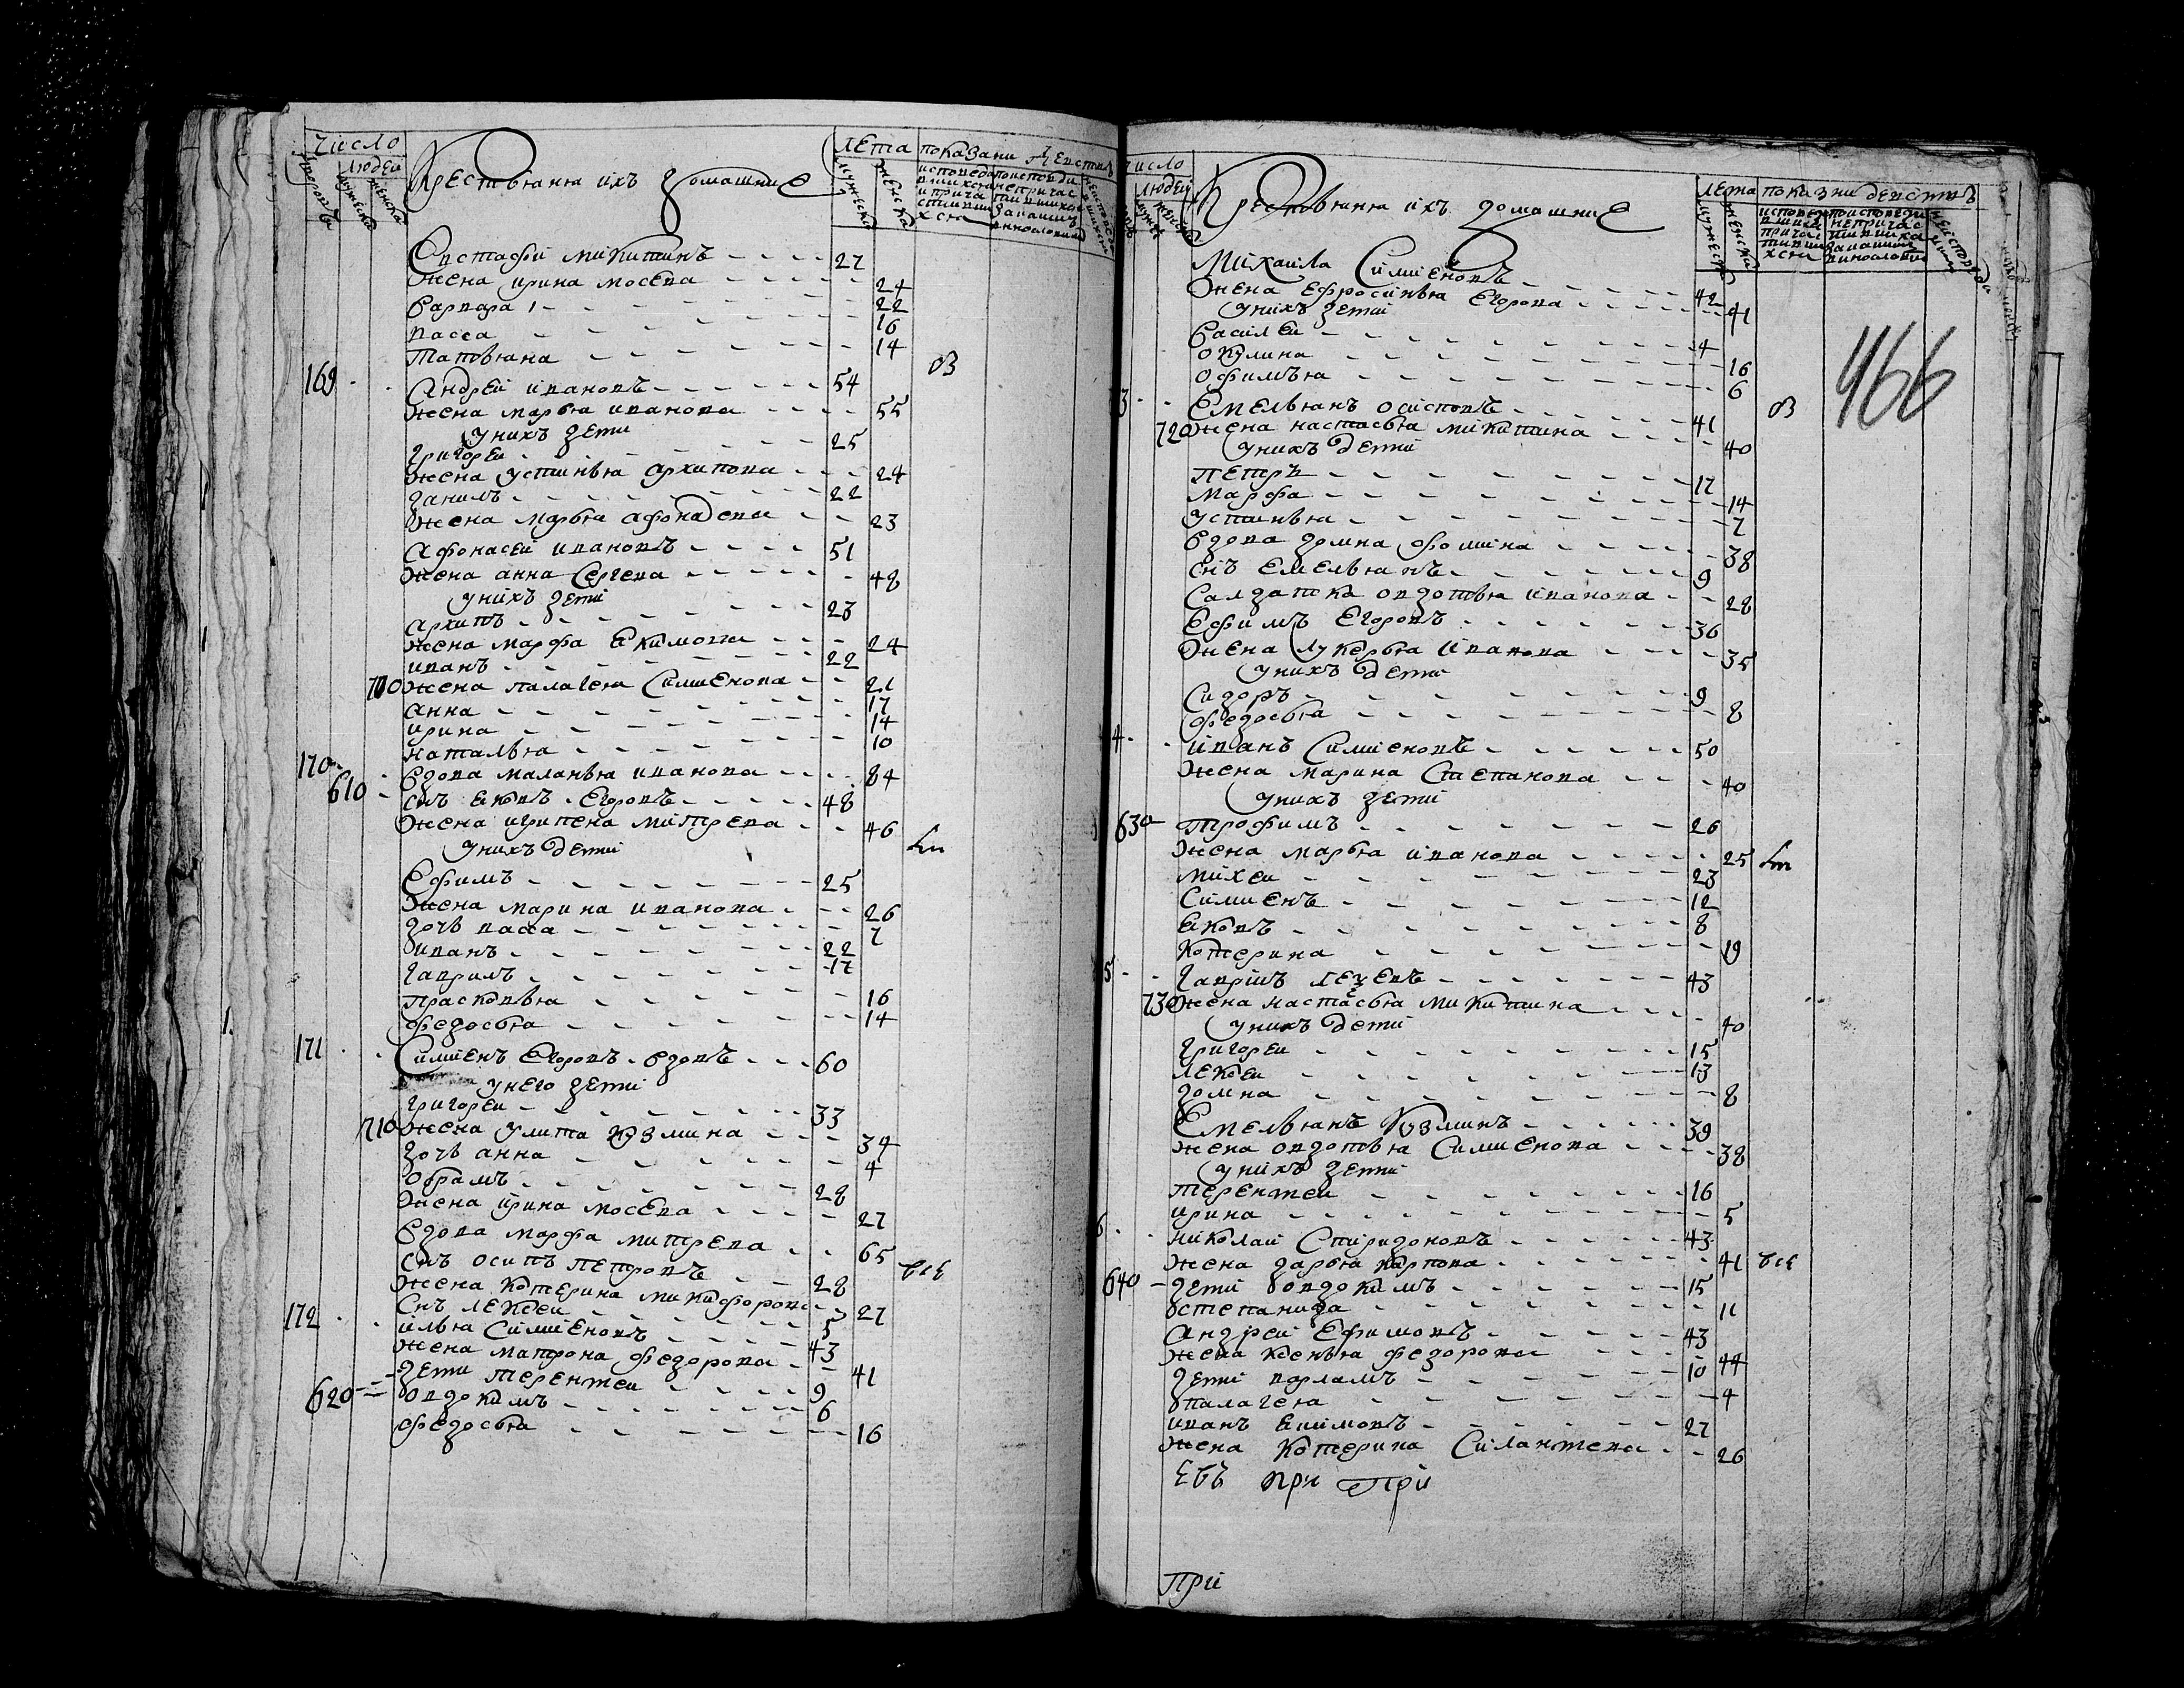 число
людей
Крестьяня ихъ домашние
лета
показани действъ
мужеска
женска
Евстафѣй микитинъ 27
жена ирина мосеева 24
варвара 22
васса 16
таповьяна 14
ОВ
169 Андреи ивановъ 54
жена марья иванова 55
у нихъ дети
григореи 25
жена устинья архипова 24
данилъ 22
жена марья афонасева 23
афонасеи ивановъ 51
жена анна Сергева 48
у нихъ дети
архипъ 23
жена марфа екимова 24
иванъ 22
700 жена палагея Симиенова 21
анна 17
ирина 14
наталья 10
170 вдова маланья иванова 84
610 снъ яковъ Егоровъ 48
жена игрипена митрева 46
у нихъ дети
Ефимъ 25
жена марина иванова 26
дочь васса 7
иванъ 22
гаврилъ 17
прасковья 16
федосья 14
171 Симиенъ Егоровъ вдовъ 60
у него дети
григореи 33
710 жена улита кузмина 34
дочь анна 4
обрамъ 28
жена ирина мосева 27
вдова марфа митрева 65
снъ осипъ петровъ 28
жена катерина микифорова 27
снъ лекъсеи 5
172 илья Симиеновъ 43
жена матрона федорова 41
дети терентеи 9
620 овдокимъ 6
федосья 16
число
людей
Крестьяня ихъ домашние
лета
показани действъ
466
Михаила Симиеновъ 42
жена ефросинья Егорова 41
у нихъ дети
василеи 4
окулина 16
офимья 6
ОВ
3 Емельянъ осиповъ 41
720 жена настасья микитина 40
у нихъ дети
петръ 17
марфа 14
устинья 7
вдова домна фомина 38
снъ Емельянъ 9
салдатка овдотья иванова 28
Ефимъ Егоровъ 36
жена лукерья иванова 35
у нихъ дети
сидоръ 9
федосья 8
4 иванъ Симиеновъ 50
жена марина Степанова 40
у нихъ дети
630 трофимъ 26
жена марья иванова 25
михеи 23
Симиенъ 12
яковъ 8
котерина 19
5 гаврилъ 43
730 жена настасья микитина 40
у нихъ дети
григореи 15
лекъсеи 13
домна 8
Емельянъ Кузминъ 39
жена овдотья Симиенова 38
у нихъ дети
терентеи 16
ирина 5
6 николаи Спиридоновъ 43
жена дарья карпова 41
640 дети овдокимъ 15
степанида 11
Андреи Ефимовъ 43
жена ксенья федорова 44
дети варламъ 10
палагея 4
иванъ 27
жена котерина Силантева 26
при при
при